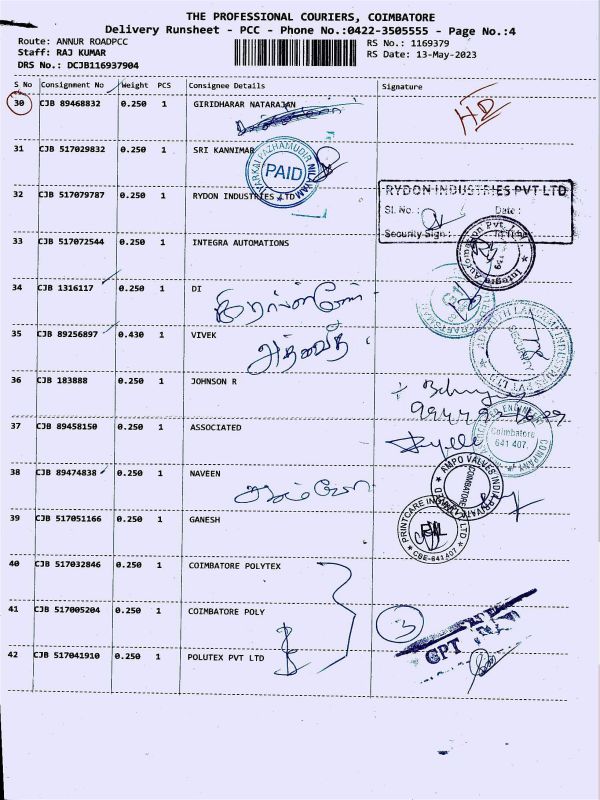 THE PROFESSIONAL COURIERS, COIMBATORE
Delivery Runsheet - PCC - Phone No.:0422-3505555 - Page No.:4
Route: ANNUR ROADPCC RS No.: 1169379
Staff: RAJ KUMAR RS Date: 13-May-2023
DRS No.: DCJB116937904
S No Consignment No Weight PCS Consignee Details Signature
30 CJB 89468832 0.250 1 GIRIDHARAR NATARAJAN HD
31 CJB 517029832 0.250 1 SRI KANNIMAR
PAID
32 CJB 517079787 0.250 1 RYDON INDUSTRIES LTD
RYDON INDUSTRIES PVT LTD
Sl. No : Date :
Security Sign :
33 CJB 517072544 0.250 1 INTEGRA AUTOMATIONS
Integra Automation Pvt. Ltd.
34 CJB 1316117 0.250 1 DI
35 CJB 89256897 0.430 1 VIVEK
SECURITY
36 CJB 183888 0.250 1 JOHNSON R
37 CJB 89458150 0.250 1 ASSOCIATED
COMPANY
Coimbatore
641 407.
38 CJB 89474838 0.250 1 NAVEEN
AMPO VALVES INDIA PRIVATE
COIMBATORE
39 CJB 517051166 0.250 1 GANESH
PRINTCARE
CBE-641407
40 CJB 517032846 0.250 1 COIMBATORE POLYTEX
41 CJB 517005204 0.250 1 COIMBATORE POLY 3
GPT
42 CJB 517041910 0.250 1 POLUTEX PVT LTD